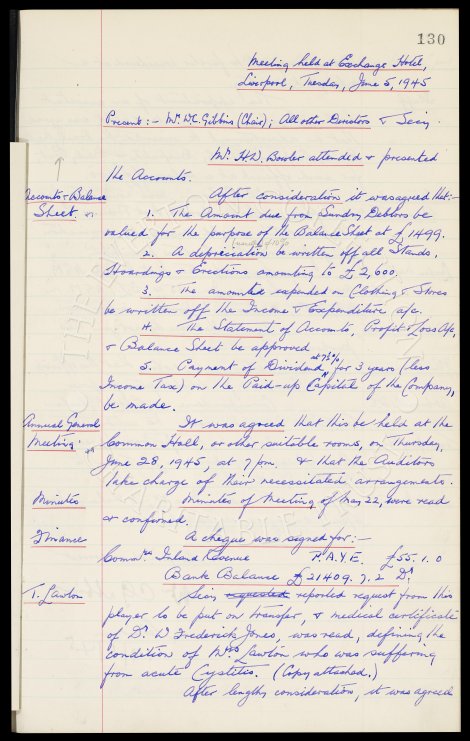 130
Meeting held at Exchange Hotel,
Liverpool, Tuesday, June 5, 1945
Present:- Mr. W.C. Gibbins (Chair); All other Directors & Secy.
Mr. H.D. Bowler attended & presented
the Accounts.
After consideration it was agreed that:-
Accounts & Balance
Sheet.
1. The Amount due from Sundry Debtors be
valued for the purpose of the Balance Sheet at £1499.
2. A depreciation be written off all Stands,
Hoardings & Erections amounting to £2,600.
3. The amounted expended on Clothing & Stores
be written off the Income & Expenditure a/c.
4. The Statement of Accounts, Profit & Loss A/c,
& Balance Sheet be approved
5. Payment of Dividend at 7½%, for 3 years (less
Income Tax) on the Paid-up Capital of the Company,
be made.
Annual General
Meeting.
It was agreed that this be held at the
Common Hall, or other suitable rooms, on Thursday,
June 28, 1945, at 7 pm. & that the Auditors
take charge of their necessitated arrangements.
Minutes
Minutes of Meeting of May 22, were read
& confirmed.
Finance
A cheque was signed for:-
Commrs Inland Revenue P.A.Y.E. £55.1.0
Bank Balance £21409.7.2 Dr
T. Lawton
Secy. requested reported request from this
player to be put on transfer, & medical certificate
of Dr. W Frederick Jones, was read, defining the
condition of Mrs. Lawton who was suffering
from acute Cystitis. (Copy attached.)
After lengthy consideration, it was agreed